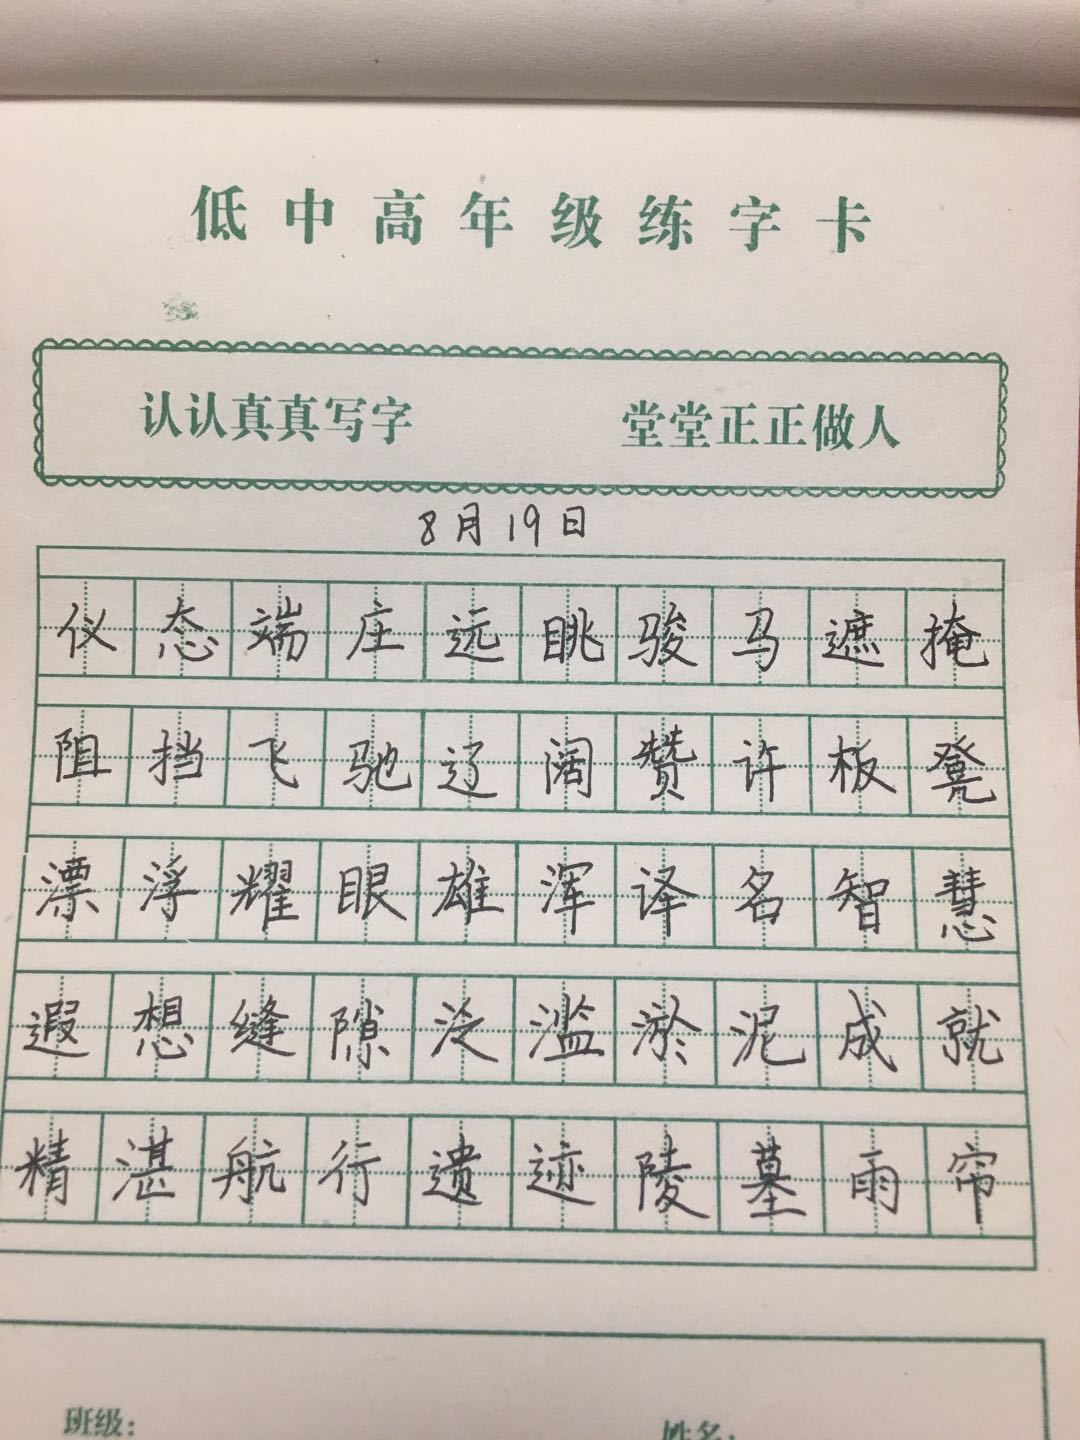 低中高年级练字卡
认认真真写字 堂堂正正做人
8月19日
仪态端庄远眺骏马遮掩
阻挡飞驰辽阔赞许板凳
漂浮耀眼雄浑译名智慧
遐想缝隙泛滥淤泥成就
精湛航行遗迹陵墓雨帘
班级: 姓名: